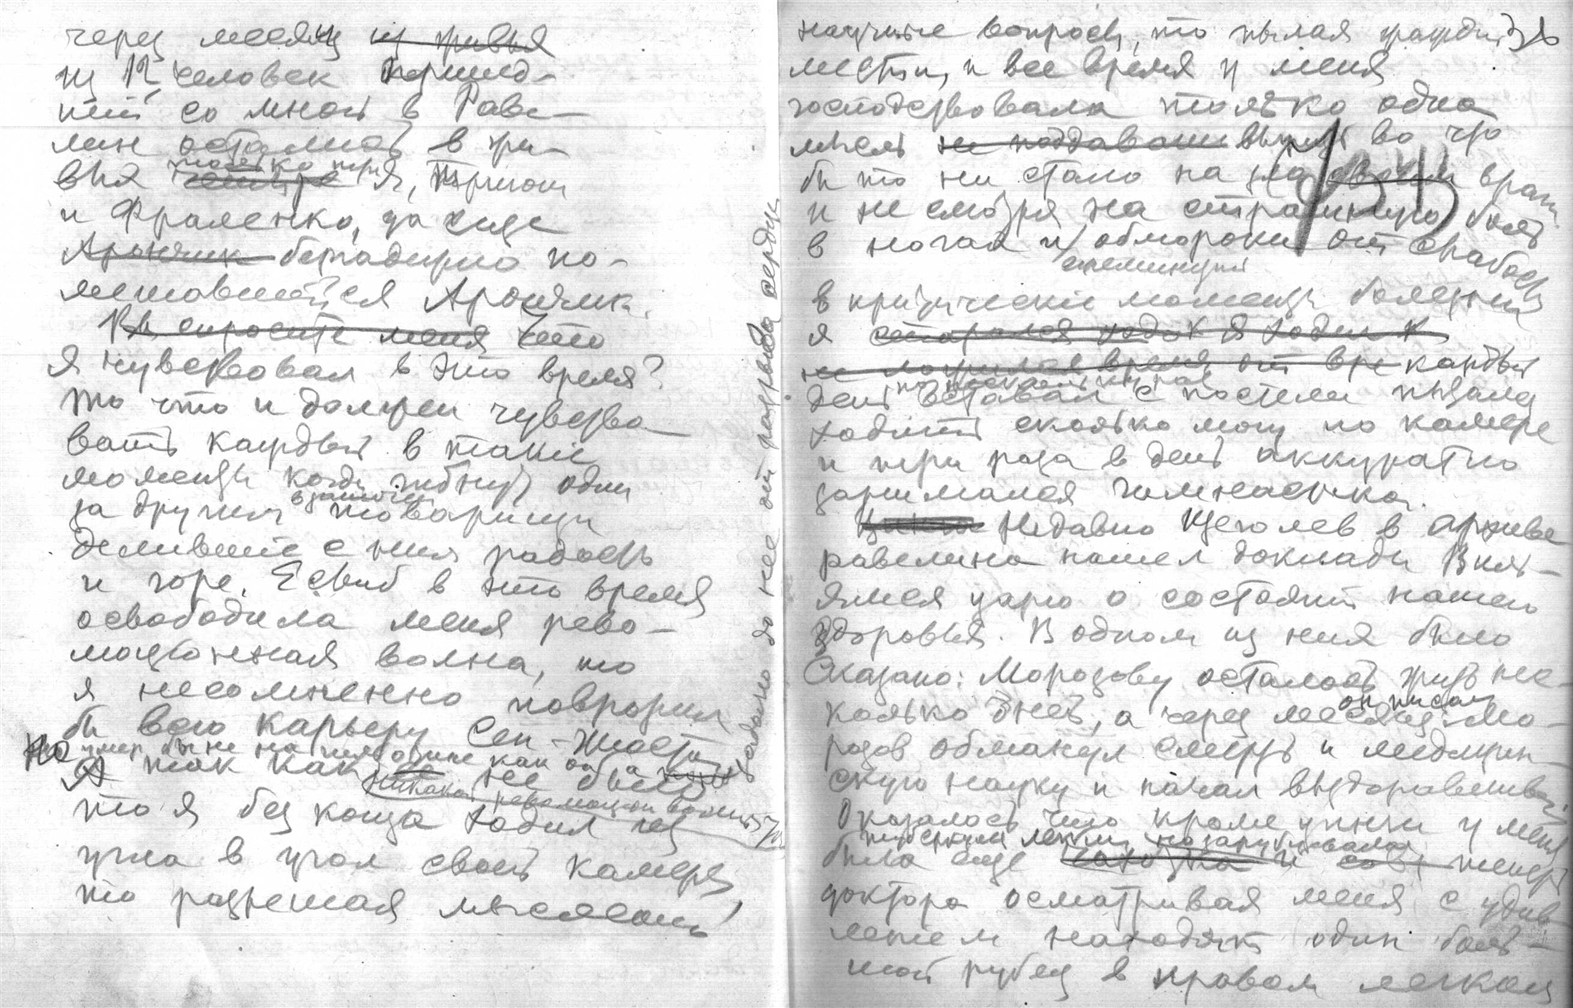 через месяц из живых
из 12 человек пришед-
ших со мной в Раве-
лин остались в жи-
вых четыре только три я, Тригони
и Фроленко, да еще
Арончик безнадежно по-
мешавшийся Арончик.
Вы спросите меня Что
я чувствовал в это время?
То что и должен чувство-
вать каждый в такие
моменты когда гибнут один
за другим товарищи
делившие с ним радость
и горе. Если б в это время
освободила меня рево-
люционная волна, то
я несомненно повторил
бы всю карьеру Сен-Жюста
но умер бы не на гильотине как он а
задолго до нее от разрыва сердца
А так как ее было
никакой революцион волны
то я без конца ходил из
угла в угол своей камеры,
то разрешая мысленно
научные вопросы, то пылая жаждой
мести, и все время у меня
господствовала только одна
мысль не поддаваться выжить во что
бы то ни стало на зло своим врагам
и не смотря на страшную боль
в ногах и обмороки от слабости
в критические моменты болезни
я старался ходить я ходил к
не ложился время от вре каждый
день по нескольку раз вставал с постели пытался
ходить сколько могу по камере
и три раза в день аккуратно
занимался гимнастикой.
Недавно Щеголев в архиве
равелина нашел доклады Виль-
ямса царю о состоянии нашего
здоровья. В одном из них было
сказано: Морозову осталось жить нес-
колько дней, а через месяц он писал: Мо-
розов обманул смерть и медицин-
скую науку и начал выздоравливать.
Оказалось что кроме цынги у меня
был еще туберкулез легких
теперь
доктора осматривая меня с удив-
лением находят один боль-
шой рубец в правом легком